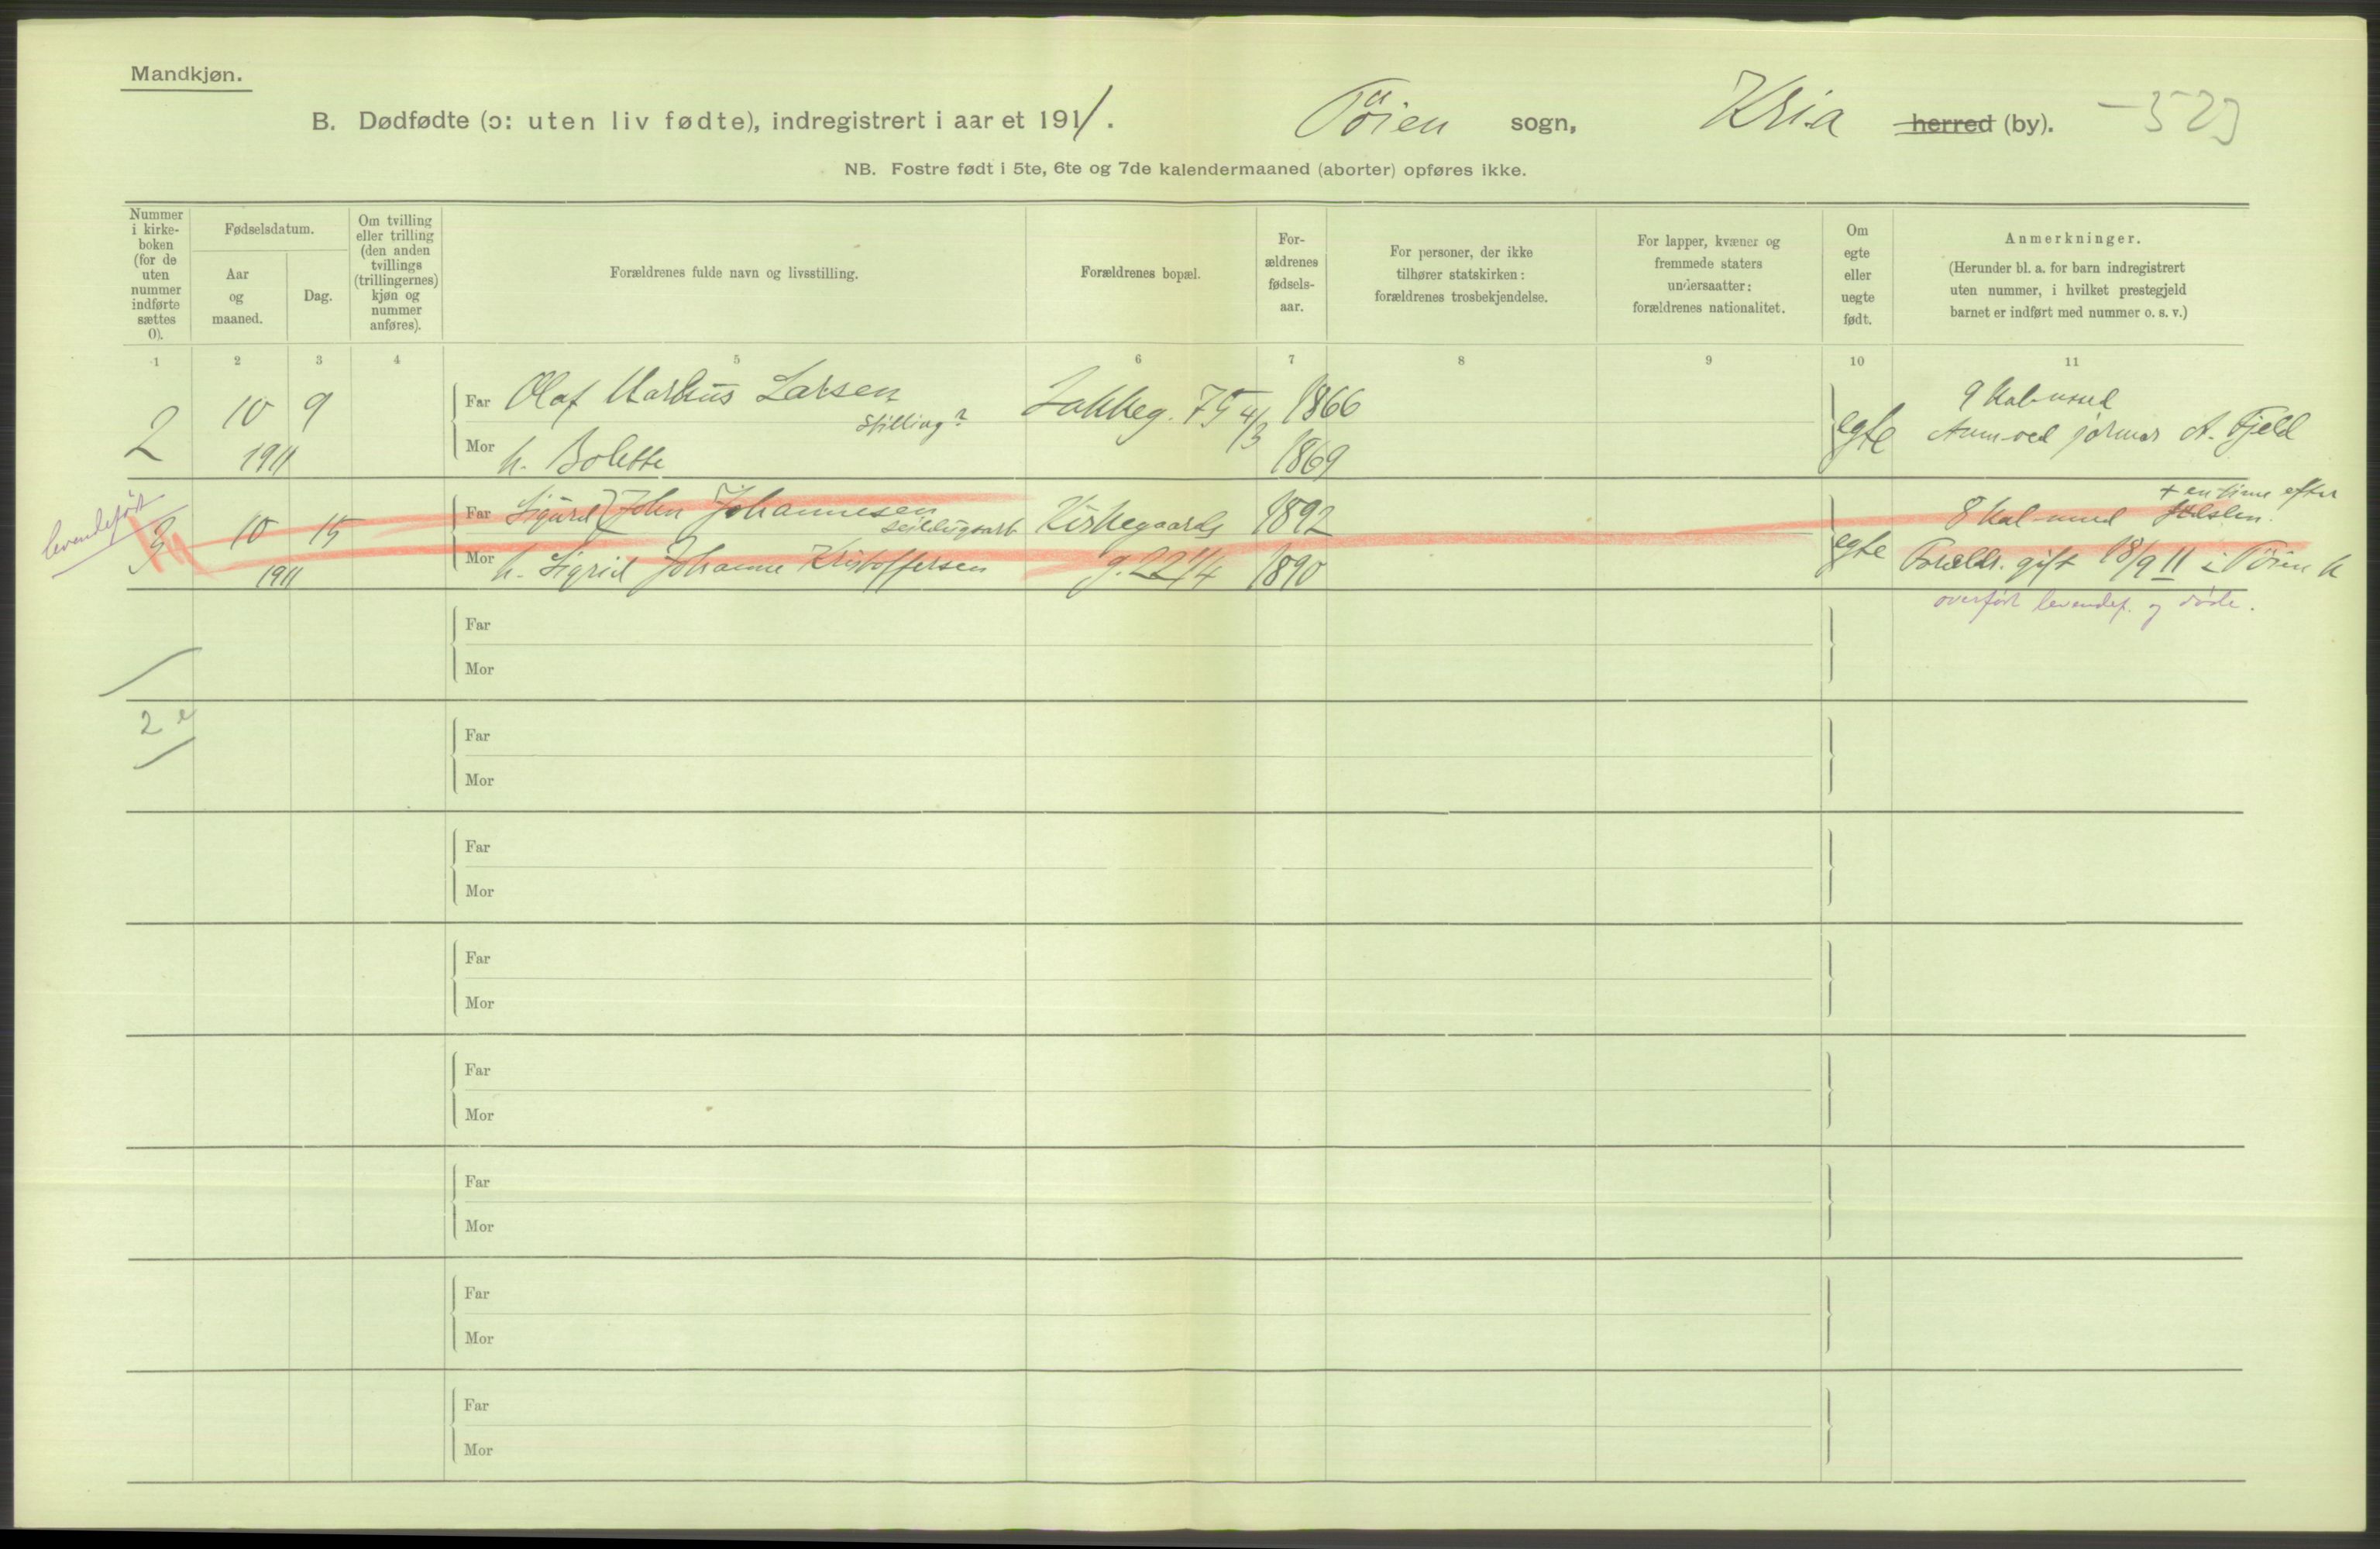 Mandkjøn.
B. Dødfødte (ɔ: uten liv fødte), indregistrert i aaret 1911. Töien sogn, Kria herred (by). -523
NB. Fostre født i 5te, 6te og 7de kalendermaaned (aborter) opføres ikke.
Nummer i kirke-boken (for de uten nummer indførte sættes 0).
Fødselsdatum.
Aar og maaned.
Dag.
Om tvilling eller trilling (den anden tvillings (trillingernes) kjøn og nummer anføres).
Forældrenes fulde navn og livsstilling.
Forældrenes bopæl.
For-ældrenes fødsels-aar.
For personer, der ikke tilhører statskirken: forældrenes trosbekjendelse.
For lapper, kvæner og fremmede staters undersaatter: forældrenes nationalitet.
Om egte eller uegte født.
Anmerkninger.
(Herunder bl. a. for barn indregistrert uten nummer, i hvilket prestegjeld barnet er indført med nummer o. s. v.)
1 2 3 4 5 6 7 8 9 10 11
2 10 9 Far Olaf Markus Larsen Stilling? Jakkeg. 75 4/3 1866 egte 9 Kal-mnd
1911 Mor h. Bolette 1869 Anm. ved jormor A. Fjeld
levendefødt
3 10 15 Far Sigurd John Johannesen Kirkegaards 1892 egte 8 Kal-mnd + en time efter
1911 Mor h. Sigrid Johanne Kristoffersen g. 22 1890 Foreldr. gift 18/9 11 i Töien k
overført levendef. og døde.
Far
Mor
2 e
Far
Mor
Far
Mor
Far
Mor
Far
Mor
Far
Mor
Far
Mor
Far
Mor